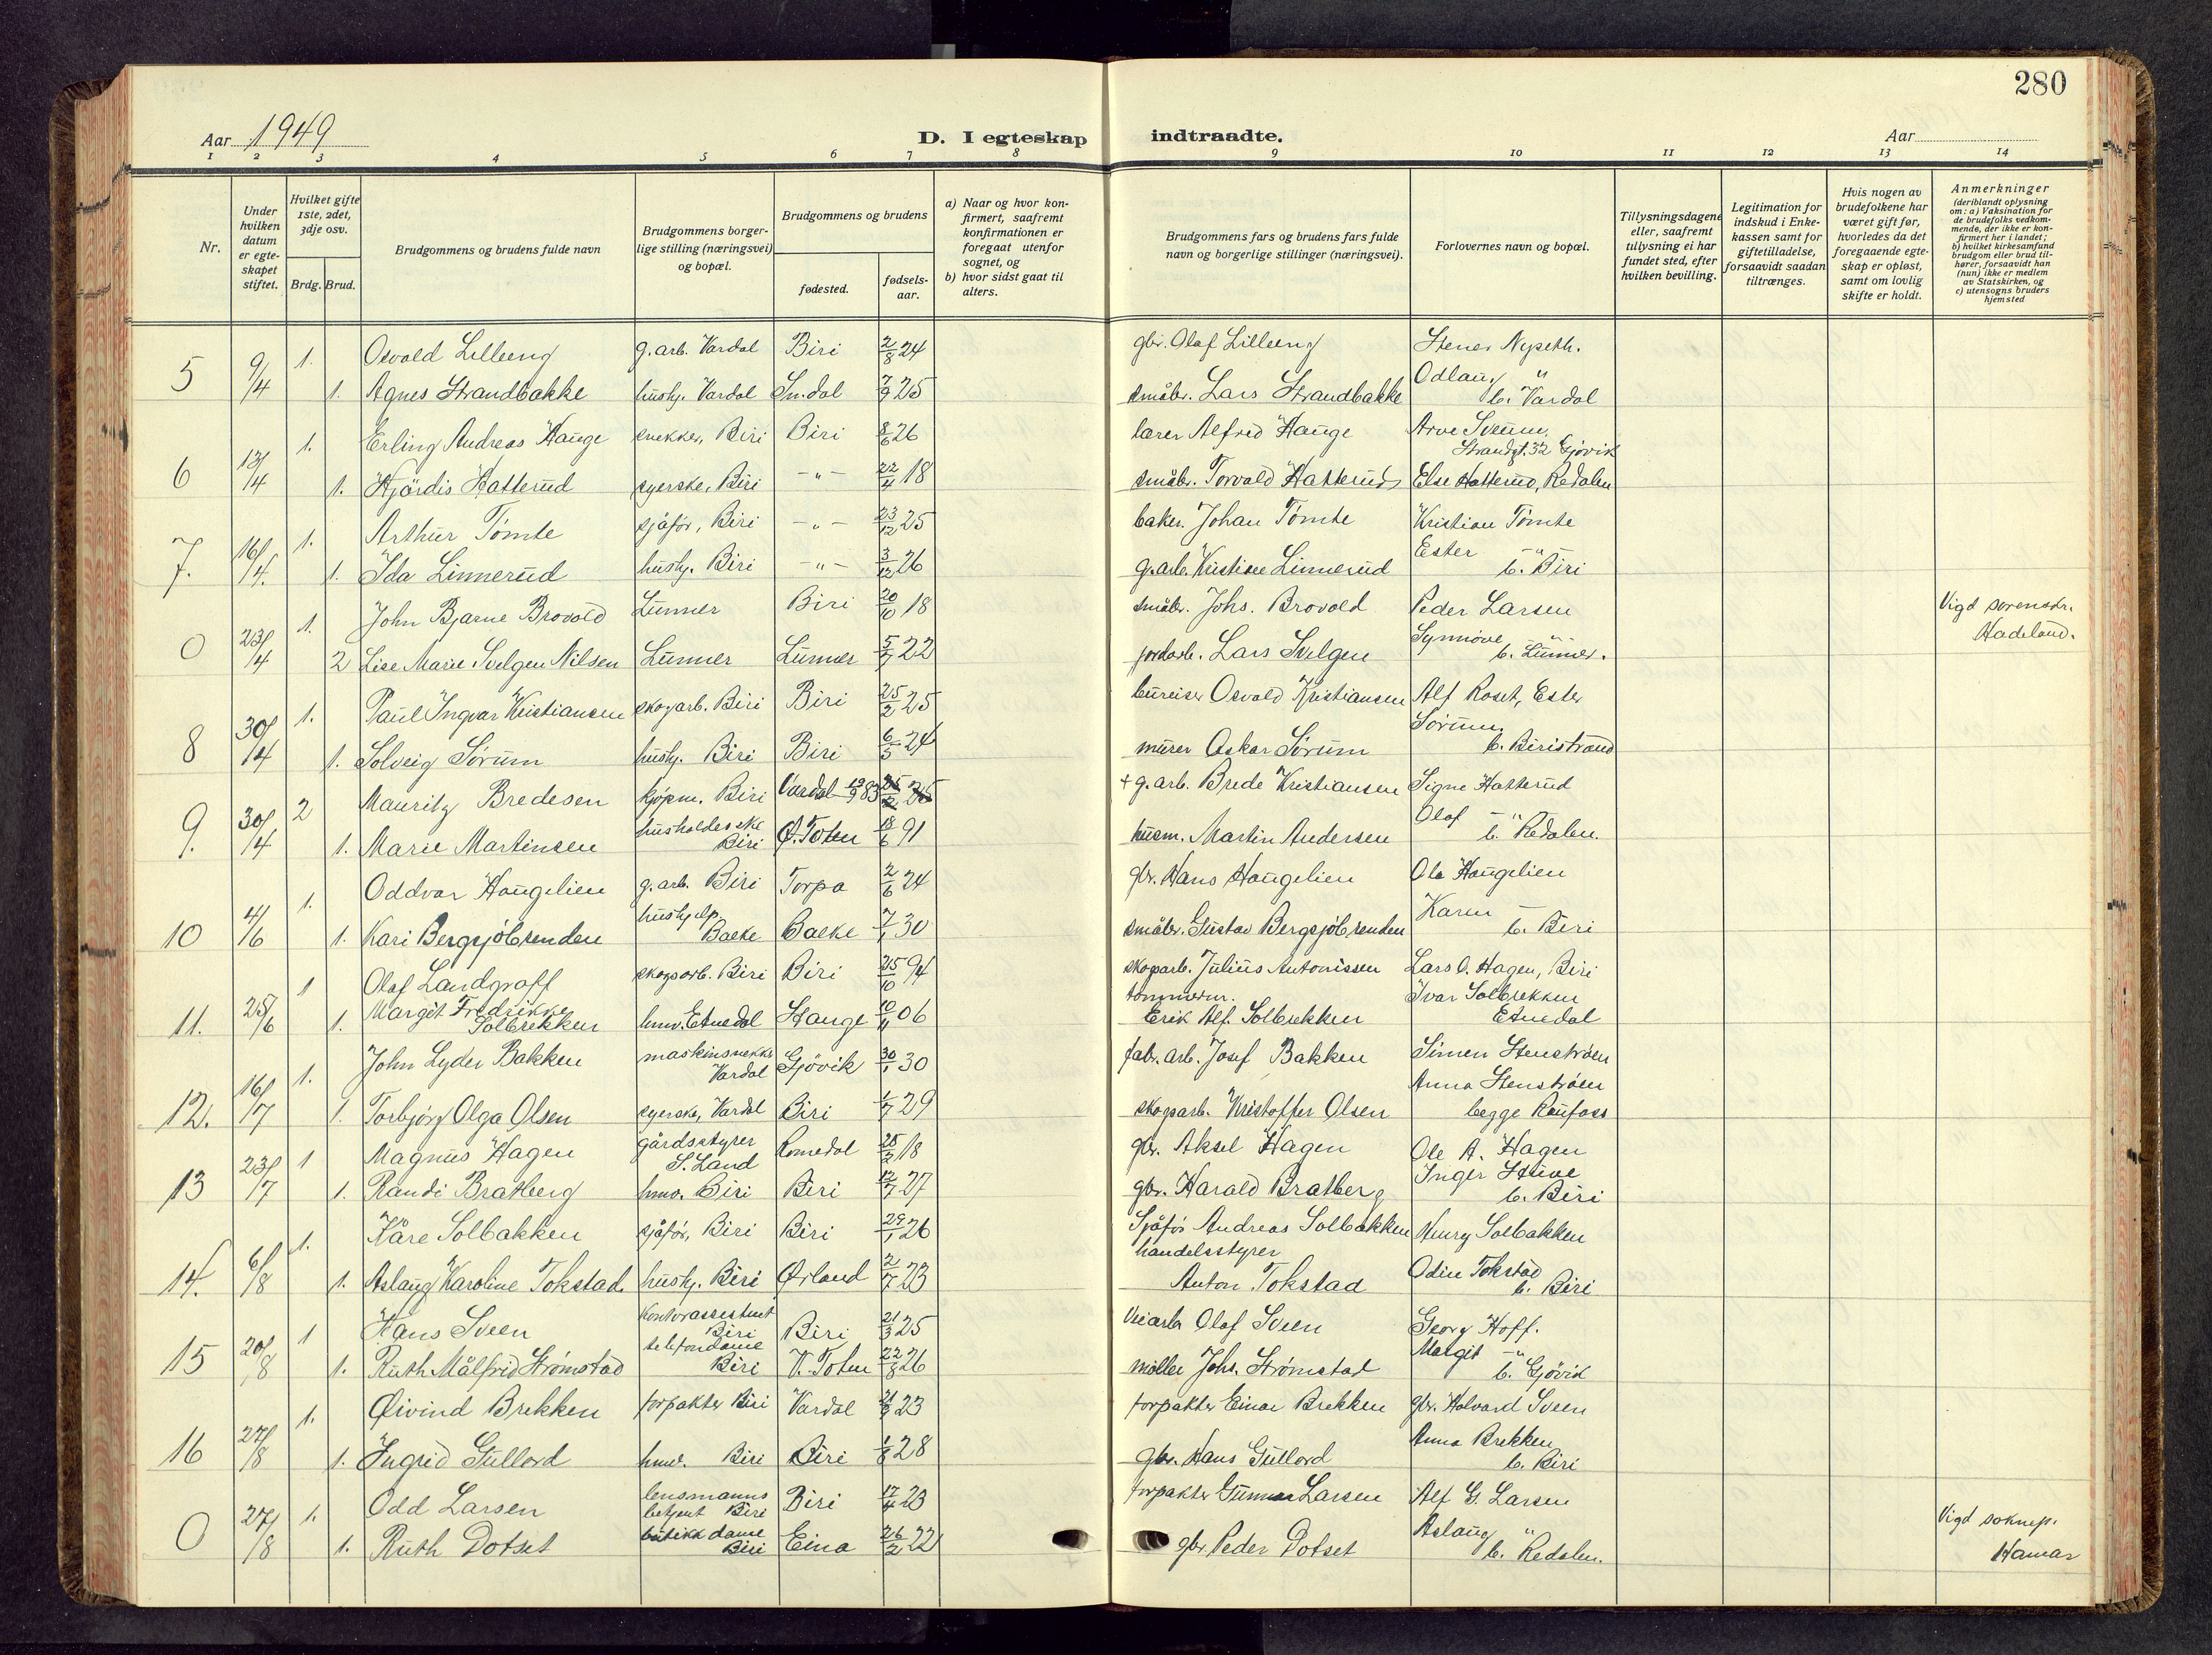 280
Aar 1949
D. I egteskap indtraadte.
Aar
1 2 3 4 5 6 7 8 9 10 11 12 13 14
Nr.
Under hvilken datum er egteskapet stiftet.
Hvilket gifte 1ste, 2det, 3dje osv.
Brdg. Brud.
Brudgommens og brudens fulde navn
Brudgommens borgerlige stilling (næringsvei) og bopæl.
Brudgommens og brudens
fødested.
fødselsaar.
a) Naar og hvor konfirmert, saafremt konfirmationen er foregaat utenfor sognet, og
b) hvor sidst gaat til alters.
Brudgommens fars og brudens fars fulde navn og borgerlige stillinger (næringsvei).
Forlovernes navn og bopæl.
Tillysningsdagene eller, saafremt tillysning ei har fundet sted, efter hvilken bevilling.
Legitimation for indskud i Enkekassen samt for giftetilladelse, forsaavidt saadan tiltrænges.
Hvis nogen av brudefolkene har været gift før, hvorledes da det foregaaende egteskap er opløst, samt om lovlig skifte er holdt.
Anmerkninger (deriblandt oplysning om: a) Vaksination for de brudefolks vedkommende, der ikke er konfirmert her i landet; b) hvilket kirkesamfund brudgom eller brud tilhører, forsaavidt han (hun) ikke er medlem av Statskirken, og c) utensogns bruders hjemsted
5 9/4 1. Osvald Lilleeng g.arb. Vardal Biri 2/8 24 gbr. Olaf Lilleeng Stener Nyseth.
1. Agnes Strandbakke hushj. Vardal Sn.dal 7/9 25 småbr. Lars Strandbakke Odlaug " b. Vardal
6 13/4 1. Erling Andreas Hauge snekker, Biri Biri 8/6 26 lærer Alfred Hauge Arve Sveum, Strandgt. 32 Gjøvik
1. Hjördis Hatterud syerske, Biri -"- 22/4 18 småbr. Torvald Hatterud Else Hatterud, Redalen
7. 16/4. 1. Arthur Tömte sjåför, Biri -"- 23/12 25 baker. Johan Tömte Kristian Tömte
1. Ida Linnerud hushj. Biri -"- 3/12 26 g.arb. Kristian Linnerud Ester -"- b. Biri
0 23/4 1. John Bjarne Brovold Lunner Biri 20/10 18 småbr. Johs. Brovold Peder Larsen Vigd sorenskr.
2 Lise Marie Svelgen Nilsen Lunner Lunner 5/7 22 jordarb. Lars Svelgen Synnöve -"- b. Lunner. Hadeland.
8 30/4 1. Paul Ingvar Kristiansen skogarb. Biri Biri 25/2 25 bureiser Osvald Kristiansen Alf Roset, Ester
1. Solveig Sørum hushj. Biri Biri 6/5 24 murer Oskar Sørum Sörum, b. Biristrand
9. 30/4 2 Mauritz Bredesen kjøpm. Biri Vardal 83 + g.arb. Brede Kristiansen Signe Hatterud
1. Marie Martinsen husholderske Biri Ø. Toten 18/6 91 husm. Martin Andersen Olaf -"- b. Redalen.
10 4/6 1. Oddvar Haugelien g.arb. Biri Torpa 2/6 24 gbr. Hans Haugelien Ole Haugelien
1. Kari Bergsjöbrenden hushjelp Bække Bække 7/1 30 småbr. Gustav Bergsjöbrenden Karen — b. Biri
11. 25/6 1 Olaf Landgraff skogsarb. Biri Biri 25/10 94 skogarb. Julius Antonissen Lars O. Hagen, Biri
1. Margit Fredrikke Solbrekken hmv. Etnedal Stange 10/11 06 tømmerm. Erik Alf. Solbrekken Ivar Solbrekken Etnedal
12. 16/7 1. John Lyder Bakken maskinsnekker Vardal Gjövik 30/1 30 fabr. arb. Josef Bakken Simen Stenströen
1. Torbjörg Olga Olsen syerske, Vardal Biri 1/7 29 skogsarb. Kristoffer Olsen Anna Stenströen begge Raufoss
13 23/7 1 Magnus Hagen gårdsstyrer S. Land Romedal 25/2 18 gbr. Aksel Hagen Ole A. Hagen
1. Randi Bratberg hmv. Biri Biri 12/7 27 gbr. Harald Bratberg Inger Stuve b. Biri
14. 6/8 1. Kåre Solbakken sjåför, Biri Biri 29/1 26 Sjåför Andreas Solbakken Henry Solbakken
1. Aslaug Karoline Tokstad hushj. Biri Ørland 2/7 23 handelsstyrer Anton Tokstad Odin Tokstad b. Biri
15 20/8 1 Hans Sveen Kontorassistent Biri Biri 21/3 25 Veiarb Olaf Sveen Georg Hoff.
1. Ruth Målfrid Strømstad telefondame Biri V. Toten 22/8 26 møller Johs. Strømstad Margit -"- b. Gjövik
16 27/8 1. Øivind Brekken forpakter Biri Vardal 23 forpakter Einar Brekken gbr. Halvard Sveen
1. Ingrid Gullord hmv. Biri Biri 1/8 28 gbr. Hans Gullord Anna Brekken b. Biri
0 27/8 1. Odd Larsen lensmanns betjent Biri Biri 17/4 23 forpakter Gunnar Larsen Alf G. Larsen Vigd soknep.
1. Ruth Dotset butikkdame Biri Eina 26/2 22 gbr. Peder Dotset Aslaug " b. Redalen. Hamar